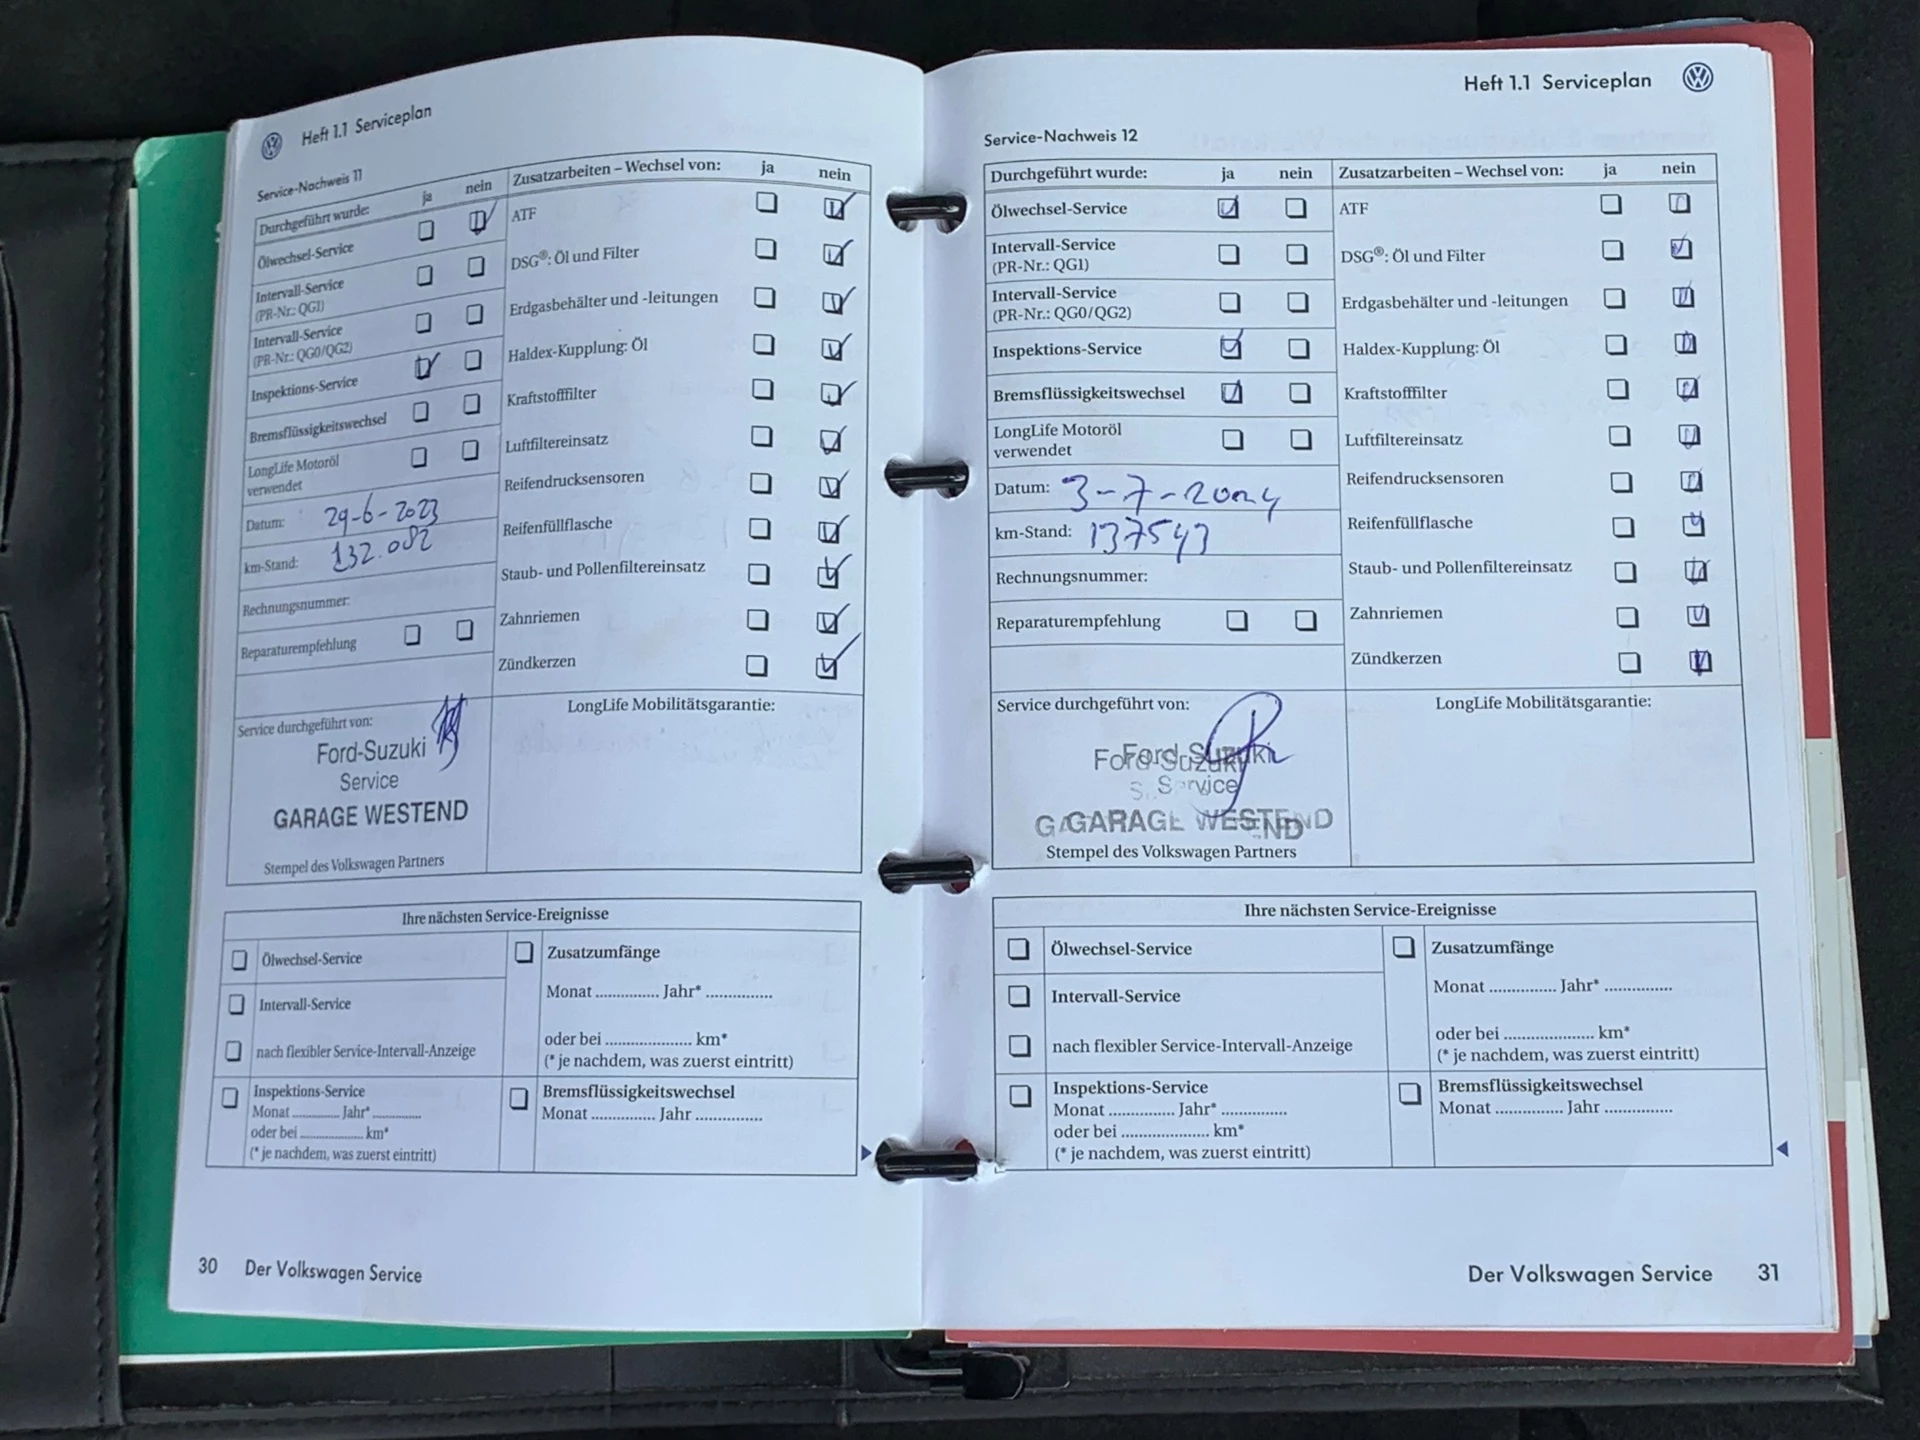 Heft 1.1 Serviceplan
Service-Nachweis 11
Durchgeführt wurde: ja nein
Ölwechsel-Service
Intervall-Service
(PR-Nr.: QG1)
Intervall-Service
(PR-Nr.: QG0/QG2)
Inspektions-Service
Bremsflüssigkeitswechsel
LongLife Motoröl
verwendet
Datum: 29-6-2023
km-Stand: 132.082
Rechnungsnummer:
Reparaturempfehlung
Zusatzarbeiten – Wechsel von: ja nein
ATF
DSG®: Öl und Filter
Erdgasbehälter und -leitungen
Haldex-Kupplung: Öl
Kraftstofffilter
Luftfiltereinsatz
Reifendrucksensoren
Reifenfüllflasche
Staub- und Pollenfiltereinsatz
Zahnriemen
Zündkerzen
Service durchgeführt von:
Ford-Suzuki
Service
GARAGE WESTEND
Stempel des Volkswagen Partners
LongLife Mobilitätsgarantie:
Ihre nächsten Service-Ereignisse
Ölwechsel-Service
Intervall-Service
nach flexibler Service-Intervall-Anzeige
Zusatzumfänge
Monat .............. Jahr* ..............
oder bei ................... km*
(* je nachdem, was zuerst eintritt)
Inspektions-Service
Monat .............. Jahr* ..............
oder bei ................... km*
(* je nachdem, was zuerst eintritt)
Bremsflüssigkeitswechsel
Monat .............. Jahr ..............
30 Der Volkswagen Service
Heft 1.1 Serviceplan
Service-Nachweis 12
Durchgeführt wurde: ja nein
Ölwechsel-Service
Intervall-Service
(PR-Nr.: QG1)
Intervall-Service
(PR-Nr.: QG0/QG2)
Inspektions-Service
Bremsflüssigkeitswechsel
LongLife Motoröl
verwendet
Datum: 3-7-2024
km-Stand: 137543
Rechnungsnummer:
Reparaturempfehlung
Zusatzarbeiten – Wechsel von: ja nein
ATF
DSG®: Öl und Filter
Erdgasbehälter und -leitungen
Haldex-Kupplung: Öl
Kraftstofffilter
Luftfiltereinsatz
Reifendrucksensoren
Reifenfüllflasche
Staub- und Pollenfiltereinsatz
Zahnriemen
Zündkerzen
Service durchgeführt von:
Ford-Suzuki
Service
GARAGE WESTEND
Stempel des Volkswagen Partners
LongLife Mobilitätsgarantie:
Ihre nächsten Service-Ereignisse
Ölwechsel-Service
Intervall-Service
nach flexibler Service-Intervall-Anzeige
Zusatzumfänge
Monat .............. Jahr* ..............
oder bei ................... km*
(* je nachdem, was zuerst eintritt)
Inspektions-Service
Monat .............. Jahr* ..............
oder bei ................... km*
(* je nachdem, was zuerst eintritt)
Bremsflüssigkeitswechsel
Monat .............. Jahr ..............
Der Volkswagen Service 31